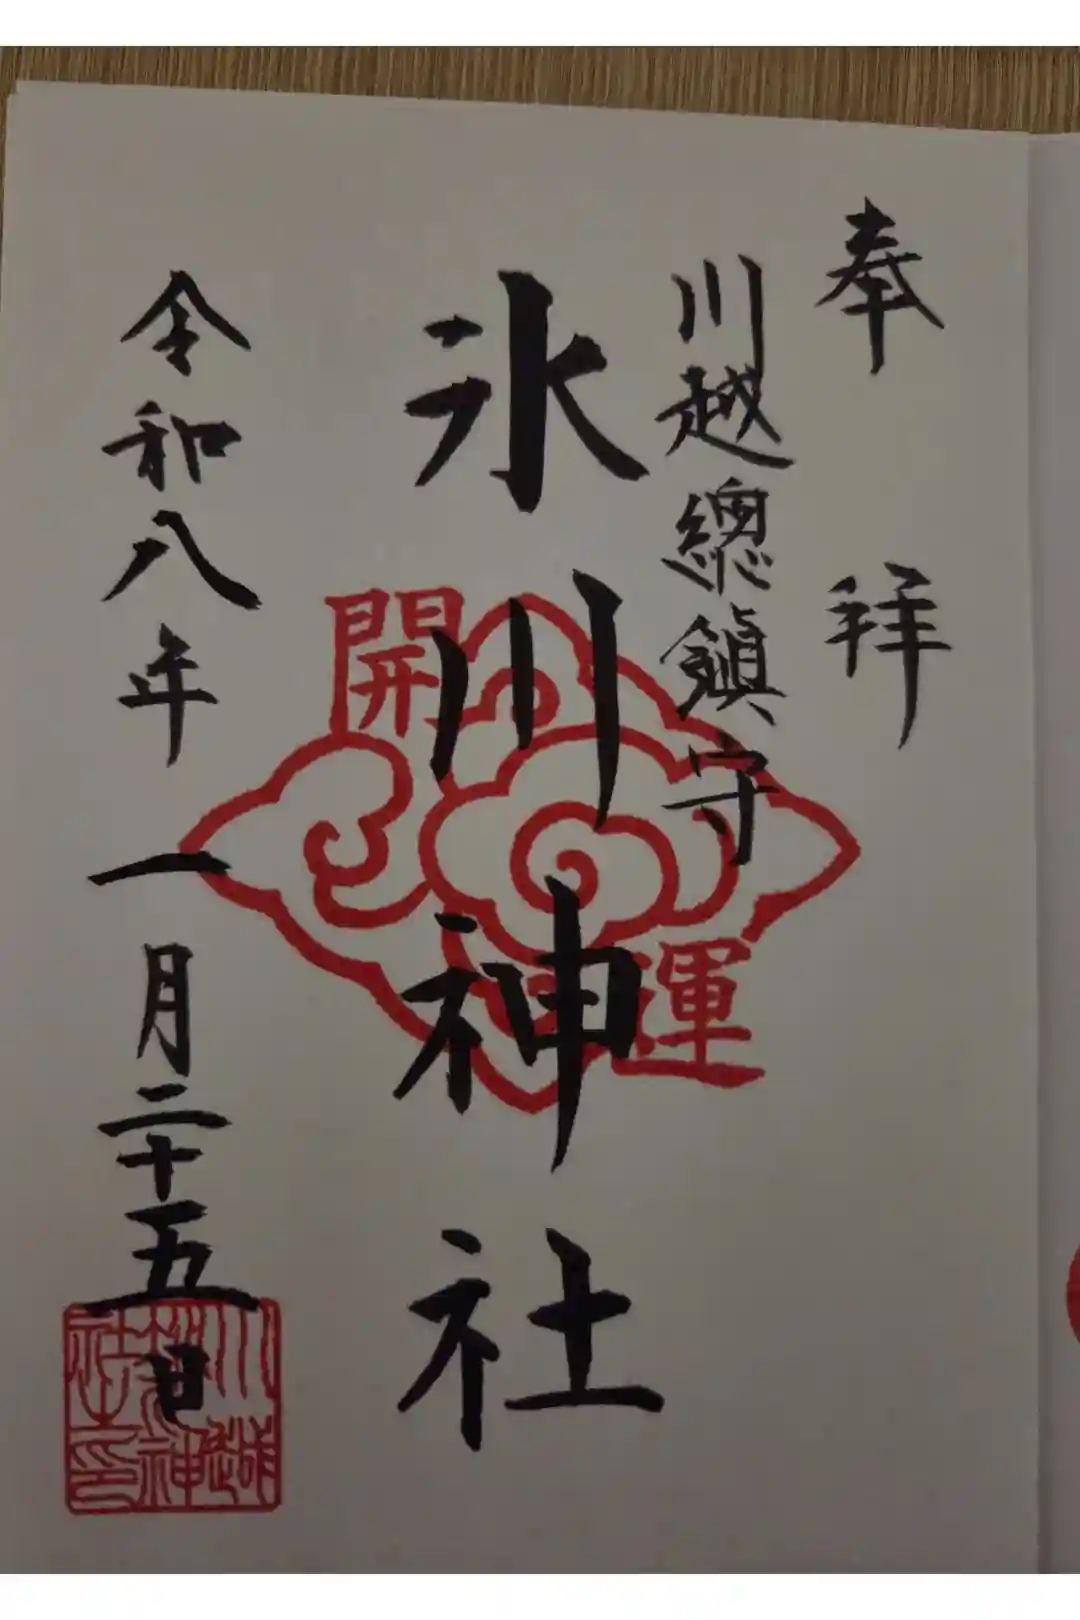 奉拝
川越總鎮守
氷川神社
開運
令和八年一月二十五日
川越
神
社
印